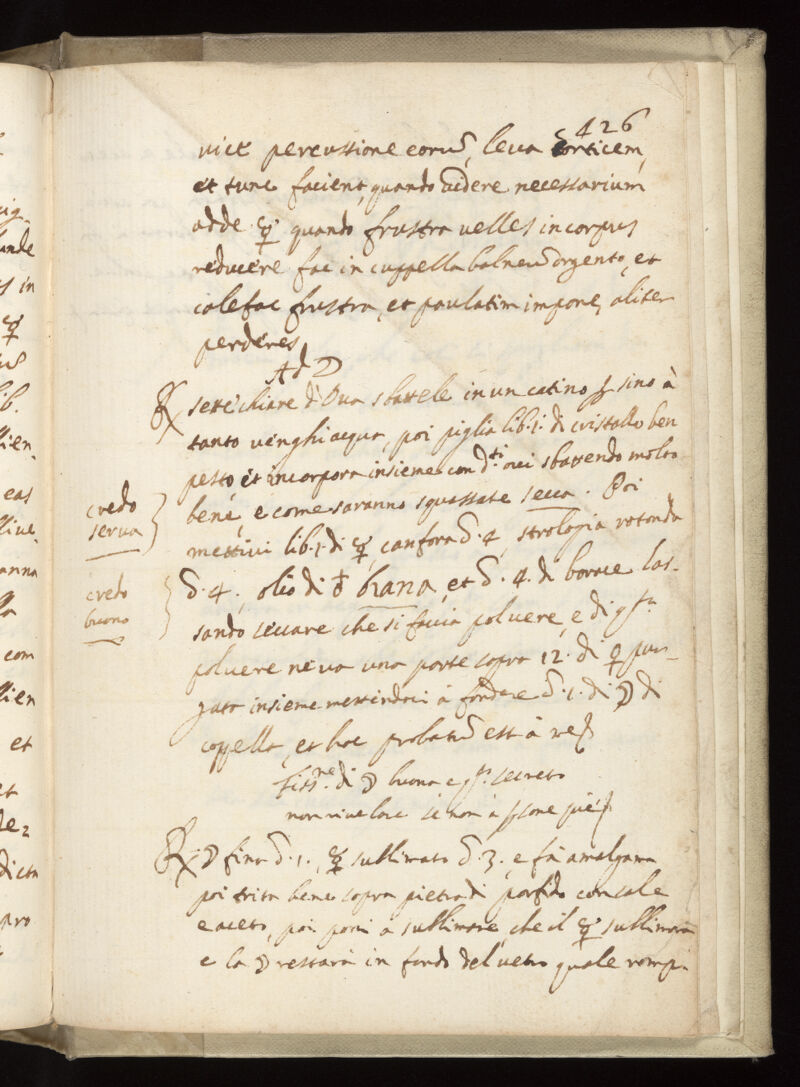 426
vice percussione eorũ, leva corticem,
et tunc facient, quando videre necessarium
adde ☿ quando frustra velles in corpus
reducere fac in cuppella balneũ argento, et
calefac frustra, et paulatim impone, aliter
perderes
Ad ☽
℞ sette chiare d'Ova sbattele in un catino sino à
tanto venghi acqua, poi piglia lib. 1. di cristallo ben
pesto et incorpora insieme con d.ti ovi sbattendo molto
bene, e come saranno squassate secca. Poi
mettivi lib. 1 di ☿, canfora 4, strologia rotonda
4., olio di briana, et 4. di borace las-
sando seccare che si faccia polvere, e di
polvere ne va una parte sopra 12. di ♀ pur-
gata insieme mettendoci à fondere 1. di ☽ di
coppella, et hoc probatũ est à me
credo
serva
credo
buono
Fiss.ne di ☽ buona e secreto
non rivelare se non à
℞ ☽ fina 1., ☿ sublimato 3. e fà amalgama
poi trita bene sopra pietra di porfido con sale
e aceto, poi poni à sublimare, che il ☿ sublimarà
e la ☽ restarà in fondo del vetro quale rompi
uig-
unde
s in
☿
lib.
lien-
eas
live-
anna
lla
com
lien
et
et
dicta
pro